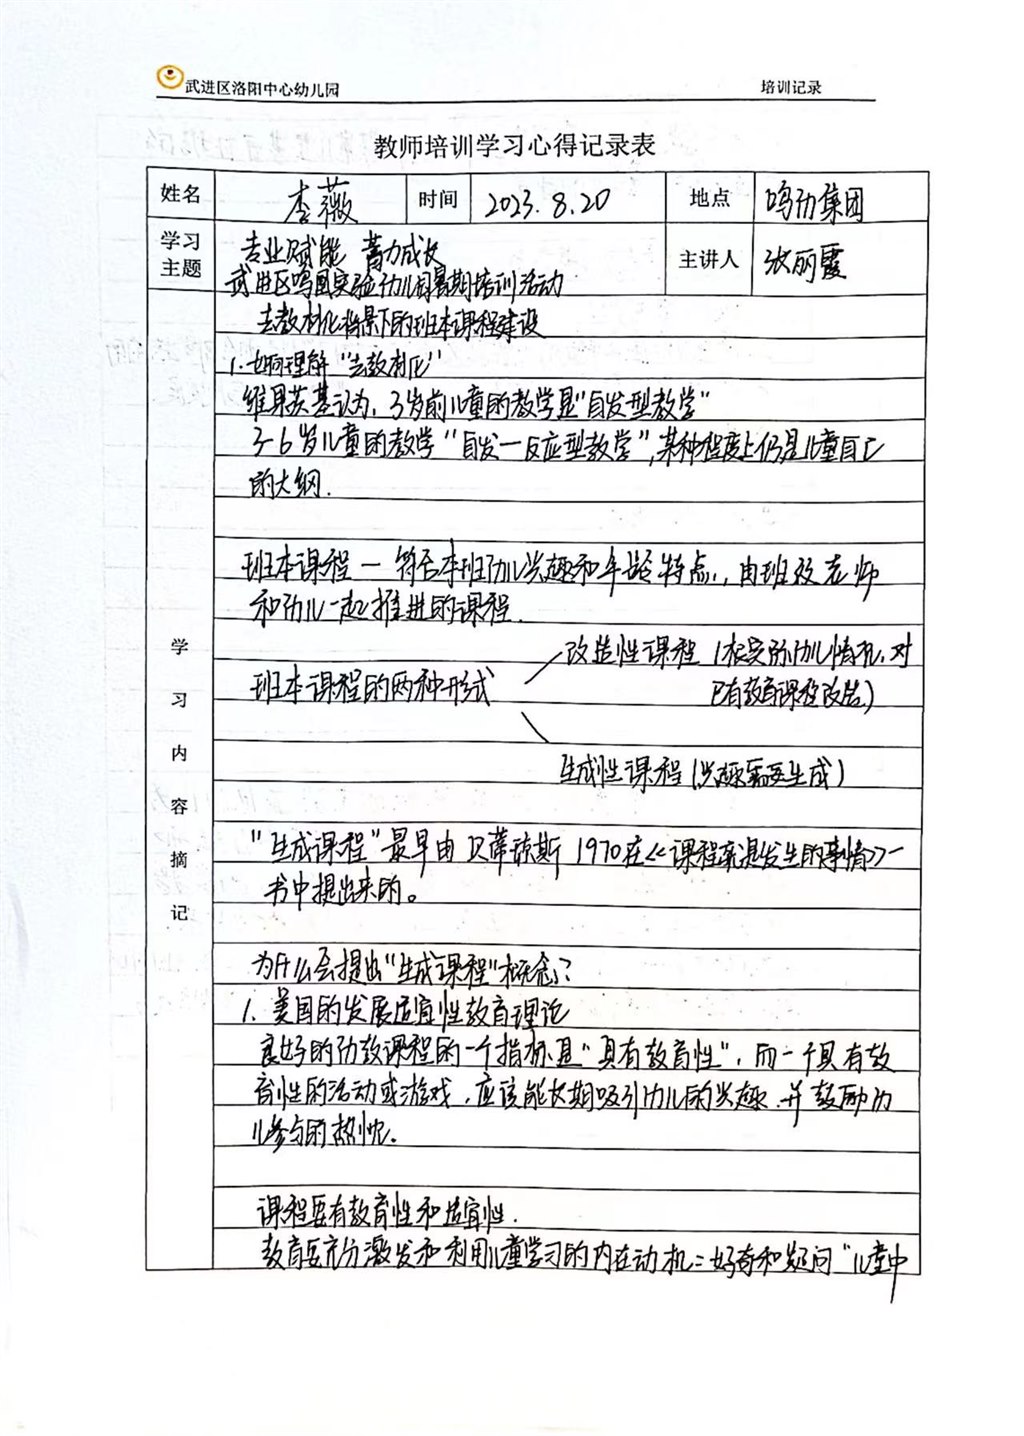 武进区洛阳中心幼儿园 培训记录
教师培训学习心得记录表
姓名 李薇 时间 2023.8.20 地点 鸣凰集团
学习主题 专业赋能 蓄力成长
武进区鸣凰实验幼儿园暑期培训活动
主讲人 张丽霞
学习内容摘记
去教材化背景下的班本课程建设
1.如何理解"去教材化"
维果茨基认为,3岁前儿童的教学是"自发型教学"
3-6岁儿童的教学"自发一反应型教学",某种程度上仍是儿童自己
的大纲.
班本课程一符合本班幼儿兴趣和年龄特点,由班级老师
和幼儿一起推进的课程.
改造性课程(根实际幼儿情况,对
班本课程的两种形式
已有教育课程改造)
生成性课程(兴趣需要生成)
"生成课程"最早由贝蒂琼斯1970在《课程就是发生的事情》一
书中提出来的。
为什么会提出"生成课程"概念?
1.美国的发展适宜性教育理论
良好的幼教课程的一个指标是"具有教育性",而一个具有教
育性的活动或游戏,应该能长期吸引幼儿的兴趣,并鼓励幼
儿参与的热忱。
课程要有教育性和适宜性.
教育要充分激发和利用儿童学习的内在动机:好奇和疑问"儿童中